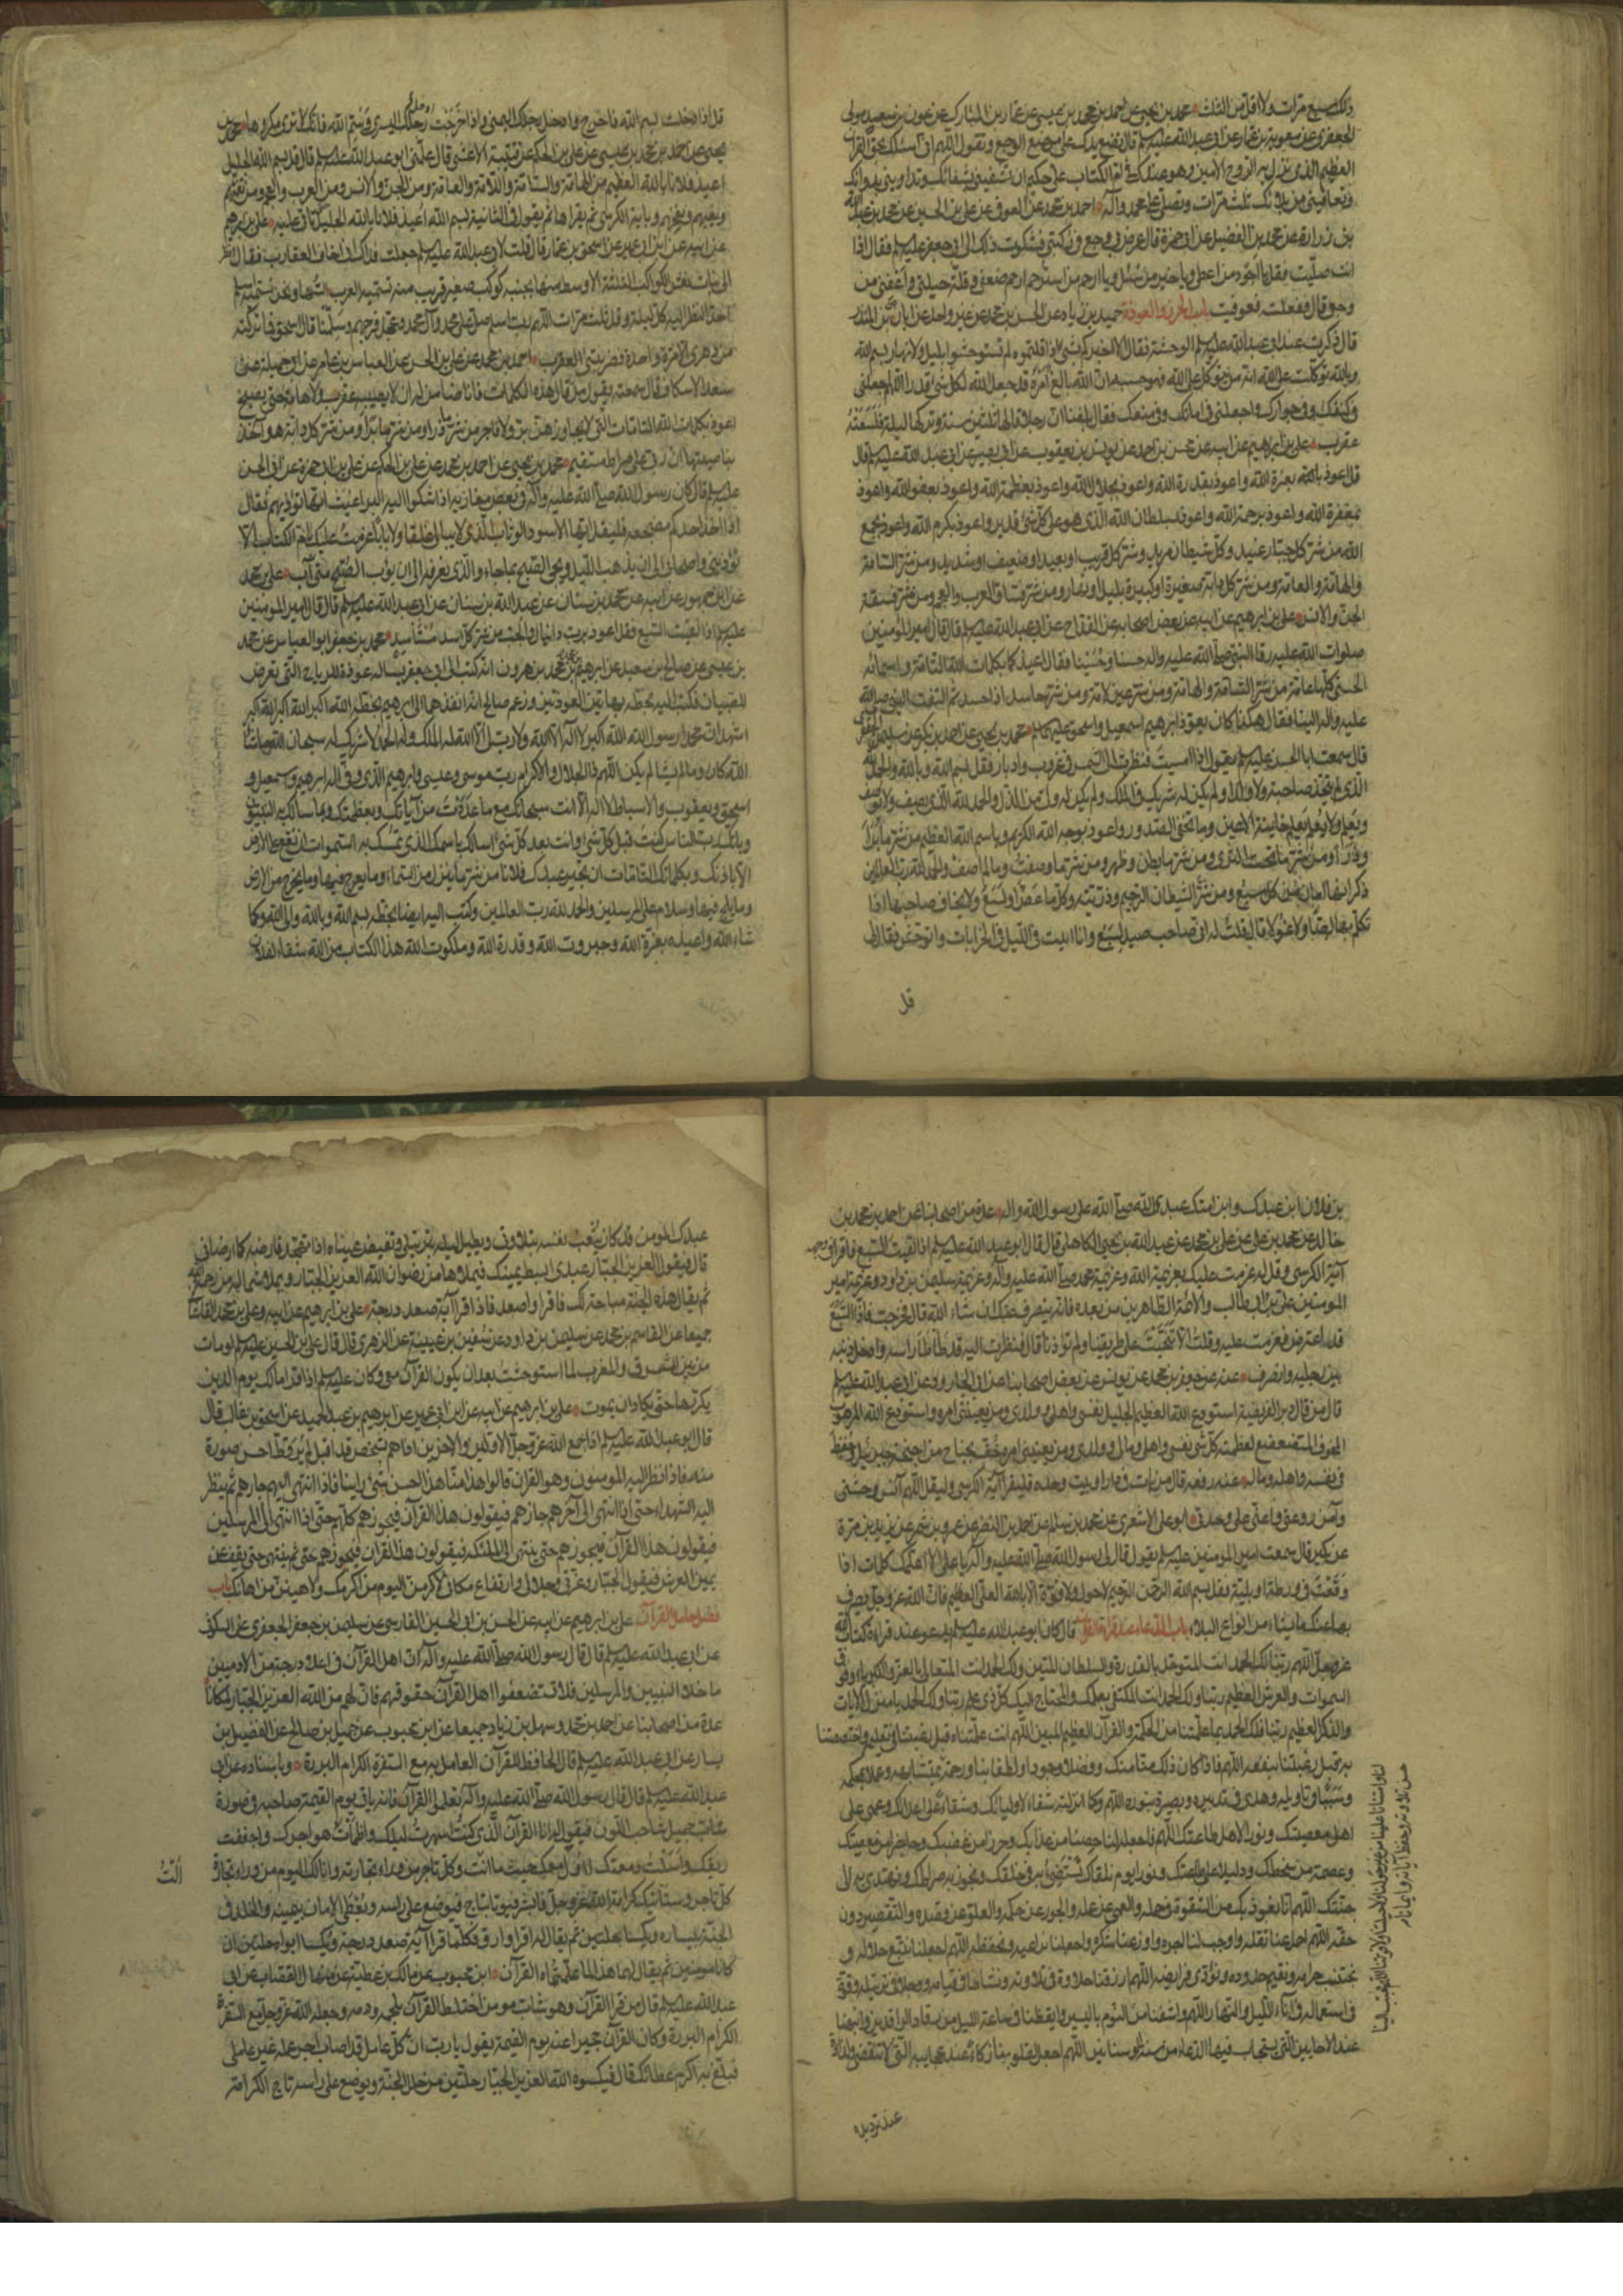 ذلك سبع مرّات ولا اقلّ من الثلث محمد بن يحيى عن احمد بن محمد بن عيسى عن عمار بن المبارك عن عون بن سعيد مولى
الجعفرى عن معوية بن عمار عن ابى عبد الله عليه السلم قال تضع يدك على موضع الوجع وتقول اللهم انى اسئلك بحق القرآن
العظيم الذى نزل به الروح الامين وهو عندك فى ام الكتاب على حكيم ان تشفينى بشفائك وتداوينى بدوائك
وتعافينى من بلائك ثلث مرّات وتصلى على محمد وآله احمد بن محمد عن العوفى عن على بن الحسين عن محمد بن عبد الله
بن زرارة عن محمد بن الفضيل عن ابى حمزة قال عرض بى وجع فى ركبتى فشكوت ذلك الى ابى جعفر عليه السلم فقال اذا
انت صلّيت فقل يا اجود من اعطى ويا خير من سئل ويا ارحم من استرحم ارحم ضعفى وقلّة حيلتى واعفنى من
وجعى قال ففعلت فعوفيت باب الحرز والعوذة حميد بن زياد عن الحسن بن محمد عن غير واحد عن ابان عن ابن المنذر
قال ذكرت عند ابى عبد الله عليه السلم الوحشة فقال الا اخبركم بشى اذا قلتموه لم تستوحشوا بليل ولا نهار بسم الله
وبالله توكلت على الله انه من يتوكل على الله فهو حسبه ان الله بالغ امره قد جعل الله لكل شئ قدرا اللهم اجعلنى
فى كنفك وفى جوارك واجعلنى فى امانك وفى منعك فقال بلغنا ان رجلا قالها ثلثين سنة وتركها ليلة فلسعته
عقرب على بن ابرهيم عن ابيه عن محسن بن احمد عن يونس بن يعقوب عن ابى بصير عن ابى عبد الله عليه السلم قال
قل اعوذ بالله بعزة الله واعوذ بقدرة الله واعوذ بجلال الله واعوذ بعظمة الله واعوذ بعفو الله واعوذ
بمغفرة الله واعوذ برحمة الله واعوذ بسلطان الله الّذى هو على كل شئ قدير واعوذ بكرم الله واعوذ بجمع
الله من شر كل جبّار عنيد وكلّ شيطان مريد وشر كل قريب او بعيد او ضعيف او شديد ومن شر السّامّة
والهامّة والعامّة ومن شر كل دابة صغيرة او كبيرة بليل او نهار ومن شر فسّاق العرب والعجم ومن شر فسقة
الجن والانس على بن ابرهيم عن ابيه عن بعض اصحابه عن القداح عن ابى عبد الله عليه السلم قال قال امير المؤمنين
صلوات الله عليه رقا النبى صلّى الله عليه واله حسنا وحسينا فقال اعيذكما بكلمات الله التامة واسمائه
الحسنى كلها عامّة من شر السّامة والهامّة ومن شر عين لامّة ومن شر حاسد اذا حسد ثم التفت النبى صلى الله
عليه واله الينا فقال هكذا كان يعوّذ ابرهيم اسمعيل واسحق عليهم السلم محمد بن يحيى عن احمد بن بكر عن سليمن الجعفرى
قال سمعت ابا الحسن عليه السلم يقول اذا امسيت فنظرت الى الشمس فى غروب وادبار فقل بسم الله وبالله والحمد لله
الذى لم يتخذ صاحبة ولا ولدا ولم يكن له شريك فى الملك ولم يكن له ولى من الذل والحمد لله الذى يصف ولا يوصف
ويعلم ولا يعلم يعلم خاينة الاعين وما تخفى الصدور واعوذ بوجه الله الكريم وباسم الله العظيم من شر ما برأ
وذرأ ومن شر ما تحت الثرى ومن شر ما بطن وظهر ومن شر ما وصفت وما لم اصف والحمد لله رب العالمين
ذكر انها امان من كل سبع ومن شر الشيطان الرجيم وذريته وكل ما عضّ او لسع ولا يخاف صاحبها اذا
تكلم بها لصّا ولا غولا قال قلت له انى صاحب صيد السبع وانا ابيت فى الليل فى الخرابات واتوحش فقال لى
قل
قل اذا دخلت بسم الله فاخرج وادخل رجلك اليمنى واذا خرجت رجلك اليسرى وسمّ الله فانك لا ترى مكروها محمد بن
يحيى عن احمد بن محمد بن عيسى عن على بن الحكم عن قتيبة الاعشى قال علّمنى ابو عبد الله عليه السلم قال قل بسم الله الجليل
اعيذ فلانا بالله العظيم من الهامّة والسّامّة واللامّة والعامّة ومن الجن والانس ومن العرب والعجم ومن نفثهم
وبغيهم ونفخهم وباية الكرسى ثم يقرأها ثم يقول فى الثانية بسم الله اعيذ فلانا بالله الجليل تأتى عليه على بن ابرهيم
عن ابيه عن ابن ابى عمير عن اسحق بن عمار قال قلت لابى عبد الله عليه السلم جعلت فداك انى اخاف العقارب فقال انظر
الى بنات نعش الكواكب الثلثة الاوسط منها بجنبه كوكب صغير قريب منه تسميه العرب السّها ونحن نسميه اسلم
احدّ النظر اليه كل ليلة وقل ثلث مرات اللهم رب اسلم صلّ على محمد وآل محمد وعجّل فرجهم وسلّمنا قال اسحق فما تركته
من دهرى الا مرّة واحدة فضربتنى العقرب احمد بن محمد عن على بن الحسن عن العباس بن عامر عن ابى جميلة عن
سعد الاسكاف قال سمعته يقول من قال هذه الكلمات فانا ضامن له ان لا يصيبه عقرب ولا هامّة حتى يصبح
اعوذ بكلمات الله التامات التى لا يجاوزهن بر ولا فاجر من شر ما ذرأ ومن شر ما برأ ومن شر كل دابة هو آخذ
بناصيتها ان ربى على صراط مستقيم محمد بن يحيى عن احمد بن محمد عن على بن الحكم عن على بن ابى حمزة عن ابى الحسن
عليه السلم قال كان رسول الله صلى الله عليه وآله فى بعض مغازيه اذا شكوا اليه البراغيث انها تؤذيهم فقال
اذا اخذ احدكم مضجعه فليقل ايها الاسود الوثاب الذى لا يبالى غلقا ولا بابا عزمت عليك بام الكتاب الا
تؤذينى واصحابى الى ان يذهب الليل ويجئ الصبح بما جاء والذى نعرفه الى ان يؤب الصبح متى آب على بن محمد
عن ابن جمهور عن ابيه عن محمد بن سنان عن عبد الله بن سنان عن ابى عبد الله عليه السلم قال قال امير المؤمنين
عليه السلم اذا لقيت السبع فقل اعوذ برب دانيال والجب من شر كل اسد مستأسد محمد بن جعفر ابو العباس عن محمد
بن عيسى عن صالح بن سعيد عن ابرهيم بن محمد بن هرون انه كتب الى ابى جعفر يسأله عوذة للرياح التى تعرض
للصبيان فكتب اليه بخطه بهاتين العوذتين وزعم صالح انه انفذهما الى ابرهيم بخطه الله اكبر الله اكبر الله اكبر
اشهد ان محمدا رسول الله الله اكبر لا اله الا الله ولا رب لى الا الله له الملك وله الحمد لا شريك له سبحان الله ما شاء
الله كان وما لم يشا لم يكن اللهم ذا الجلال والاكرام رب موسى وعيسى وابرهيم الذى وفّى اله ابرهيم واسمعيل و
اسحق ويعقوب والاسباط لا اله الا انت سبحانك مع ما عددت من آياتك وبعظمتك وبما سألك به النبيون
وبانك رب الناس كنت قبل كل شئ وانت بعد كل شئ اسالك باسمك الذى تمسك به السموات ان تقع على الارض
الا باذنك وبكلماتك التامات ان تجير عبدك فلانا من شر ما ينزل من السماء وما يعرج فيها وما يخرج من الارض
وما يلج فيها وسلام على المرسلين والحمد لله رب العالمين وكتب اليه ايضا بخطه بسم الله وبالله والى الله وكما
شاء الله واعيذه بعزة الله وجبروت الله وقدرة الله وملكوت الله هذا الكتاب من الله شفاء لفلان
بن فلان ابن عبدك وابن امتك عبدى الله صلى الله على رسول الله واله عدة من اصحابنا عن احمد بن محمد بن
خالد عن محمد بن على عن على بن محمد عن عبد الله بن يحيى الكاهلى قال قال ابو عبد الله عليه السلم اذا لقيت السبع فاقرأ فى وجهه
آية الكرسى وقل له عزمت عليك بعزيمة الله وعزيمة محمد صلى الله عليه وآله وعزيمة سليمن بن داود وعزيمة امير
المؤمنين على بن ابى طالب والائمة الطاهرين من بعده فانه ينصرف عنك ان شاء الله قال فخرجت فاذا السبع
قد اعترض فعزمت عليه وقلت الا تنحيت عن طريقنا ولم تؤذنا قال فنظرت اليه قد طأطأ رأسه وادخل ذنبه
بين رجليه وانصرف عنه عن جعفر بن محمد عن يونس عن بعض اصحابنا عن ابى الجارود عن ابى عبد الله عليه السلم
قال من قال دبر الفريضة استودع الله العظيم الجليل نفسى واهلى وولدى ومن يعنينى امره واستودع الله المرهوب
المخوف المتضعضع لعظمته كل شئ نفسى واهلى ومالى وولدى ومن يعنينى امره حفّ بجناح من اجنحة جبرئيل وحفظ
فى نفسه واهله وماله عنه رفعه قال من بات فى دار او بيت وحده فليقرأ آية الكرسى وليقل اللهم آنس وحشتى
وآمن روعتى واعنّى على وحدتى ابو على الاشعرى عن محمد بن سالم عن احمد بن النضر عن عمرو بن شمر عن يزيد بن مرة
عن بكير قال سمعت امير المؤمنين عليه السلم يقول قال لى رسول الله صلى الله عليه وآله يا على الا اعلمك كلمات اذا
وقعت فى ورطة او بلية فقل بسم الله الرحمن الرحيم لا حول ولا قوة الا بالله العلى العظيم فان الله عز وجل يصرف
بها عنك ما يشاء من انواع البلاء باب الدعاء عند قراءة القرآن قال كان ابو عبد الله عليه السلم يدعو عند قراءة كتاب الله
عز وجل اللهم ربنا لك الحمد انت المتوحد بالقدرة والسلطان المتين ولك الحمد انت المتعالى بالعز والكبرياء وفوق
السموات والعرش العظيم ربنا ولك الحمد انت المكتفى بعلمك والمحتاج اليك كل ذى علم ربنا ولك الحمد يا منزل الايات
والذكر العظيم ربنا فلك الحمد بما علمتنا من الحكمة والقرآن العظيم المبين اللهم انت علمتناه قبل رغبتنا فى تعليمه واختصصتنا
به قبل رغبتنا بنفعه اللهم فاذا كان ذلك منّا منك وفضلا وجودا ولطفا بنا ورحمة
وسببا فى تاويله وهدى فى تدبيره وبصيرة بنوره اللهم وكما انزلته شفاء لاوليائك وشقاء على اعدائك وعمى على
اهل معصيتك ونورا لاهل طاعتك اللهم فاجعله لنا حصنا من عذابك وحرزا من غضبك وحاجزا من معصيتك
وعصمة من سخطك ودليلا على طاعتك ونورا يوم نلقاك نستضئ به فى خلقك ونجوز به صراطك ونهتدى به الى
جنتك اللهم انا نعوذ بك من الشقوة فى حمله والعمى عن علمه والجور عن حكمه والعلو عن قصده والتقصير دون
حقه اللهم احمل عنا ثقله واوجب لنا اجره واوزعنا شكره واجعلنا نراعيه ونحفظه اللهم اجعلنا نتبع حلاله و
نجتنب حرامه ونقيم حدوده ونؤدى فرايضه اللهم ارزقنا حلاوة فى تلاوته ونشاطا فى قيامه ووجلا فى ترتيله وقوة
فى استعماله فى آناء الليل والنهار اللهم واشفنا من النوم باليسير وايقظنا فى ساعة الليل من رقاد الراقدين وانبهنا
عند الاحايين التى يستجاب فيها الدعاء من سنة الوسنانين اللهم اجعل لقلوبنا زكاء عند عجايبه التى لا تنقضى ولذاذة
عند ترديده
عبدك المؤمن قد كان يتعب نفسه بتلاوتى ويطيل ليله بترتيلى وتفيض عيناه اذا تهجد فارضه كما ارضانى
قال فيقول العزيز الجبار عبدى ابسط يمينك فيملاها من رضوان الله العزيز الجبار ويملا شماله من رحمة الله
ثم يقال هذه الجنة مباحة لك فاقرا واصعد فاذا قرا آية صعد درجة على بن ابرهيم عن ابيه وعلى بن محمد القاسانى
جميعا عن القاسم بن محمد عن سليمن بن داود عن سفين بن عيينة عن الزهرى قال قال على بن الحسين عليه السلم لو مات
من بين المشرق والمغرب لما استوحشت بعد ان يكون القرآن معى وكان عليه السلم اذا قرا مالك يوم الدين
يكررها حتى يكاد ان يموت على بن ابرهيم عن ابيه عن ابن ابى عمير عن ابرهيم بن عبد الحميد عن اسحق بن غالب قال
قال ابو عبد الله عليه السلم اذا جمع الله عز وجل الاولين والآخرين اذا هم بشخص قد اقبل لم ير قط احسن صورة
منه فاذا نظر اليه المؤمنون وهو القرآن قالوا هذا منا هذا احسن شئ راينا فاذا انتهى اليهم جازهم ثم ينظر
اليه الشهداء حتى اذا انتهى الى آخرهم جازهم فيقولون هذا القرآن فيجوزهم كلهم حتى اذا انتهى الى المرسلين
فيقولون هذا القرآن فيجوزهم حتى ينتهى الى الملئكة فيقولون هذا القرآن فيجوزهم حتى ثم ينتهى حتى يقف عن
يمين العرش فيقول الجبار وعزتى وجلالى وارتفاع مكانى لاكرمن اليوم من اكرمك ولاهينن من اهانك باب
فضل حامل القرآن على بن ابرهيم عن ابيه عن الحسن بن ابى الحسين الفارسى عن سليمن بن جعفر الجعفرى عن السكونى
عن ابى عبد الله عليه السلم قال قال رسول الله صلى الله عليه وآله ان اهل القرآن فى اعلا درجة من الادميين
ما خلا النبيين والمرسلين فلا تستضعفوا اهل القرآن حقوقهم فان لهم من الله العزيز الجبار لمكانا
عدة من اصحابنا عن احمد بن محمد وسهل بن زياد جميعا عن ابن محبوب عن جميل بن صالح عن الفضيل بن
يسار عن ابى عبد الله عليه السلم قال الحافظ للقرآن العامل به مع السفرة الكرام البررة وباسناده عن ابى
عبد الله عليه السلم قال قال رسول الله صلى الله عليه وآله تعلموا القرآن فانه ياتى يوم القيمة صاحبه فى صورة
شاب جميل شاحب اللون فيقول له انا القرآن الذى كنت اسهرت ليلك واظمأت هواجرك واجففت
ريقك واسلت دمعتك اؤل معك حيث ما الت وكل تاجر من وراء تجارته وانا لك اليوم من وراء تجارة
كل تاجر وستاتيك كرامة الله عز وجل فابشر فيؤتى بتاج فيوضع على راسه ويعطى الامان بيمينه والخلد فى
الجنة بيساره ويكسا حلتين ثم يقال له اقرا وارق فكلما قرا آية صعد درجة ويكسا ابواه حلتين ان
كانا مومنين ثم يقال لهما هذا لما علمتماه القرآن ابن محبوب عن مالك بن عطية عن منهال القصاب عن ابى
عبد الله عليه السلم قال من قرا القرآن وهو شاب مومن اختلط القرآن بلحمه ودمه وجعله الله عز وجل مع السفرة
الكرام البررة وكان القرآن حجيزا عنه يوم القيمة يقول يا رب ان كل عامل قد اصاب اجر عمله غير عاملى
فبلّغ به اكرم عطائك قال فيكسوه الله العزيز الجبار حلتين من حلل الجنة ويوضع على راسه تاج الكرامة
اُلتُ